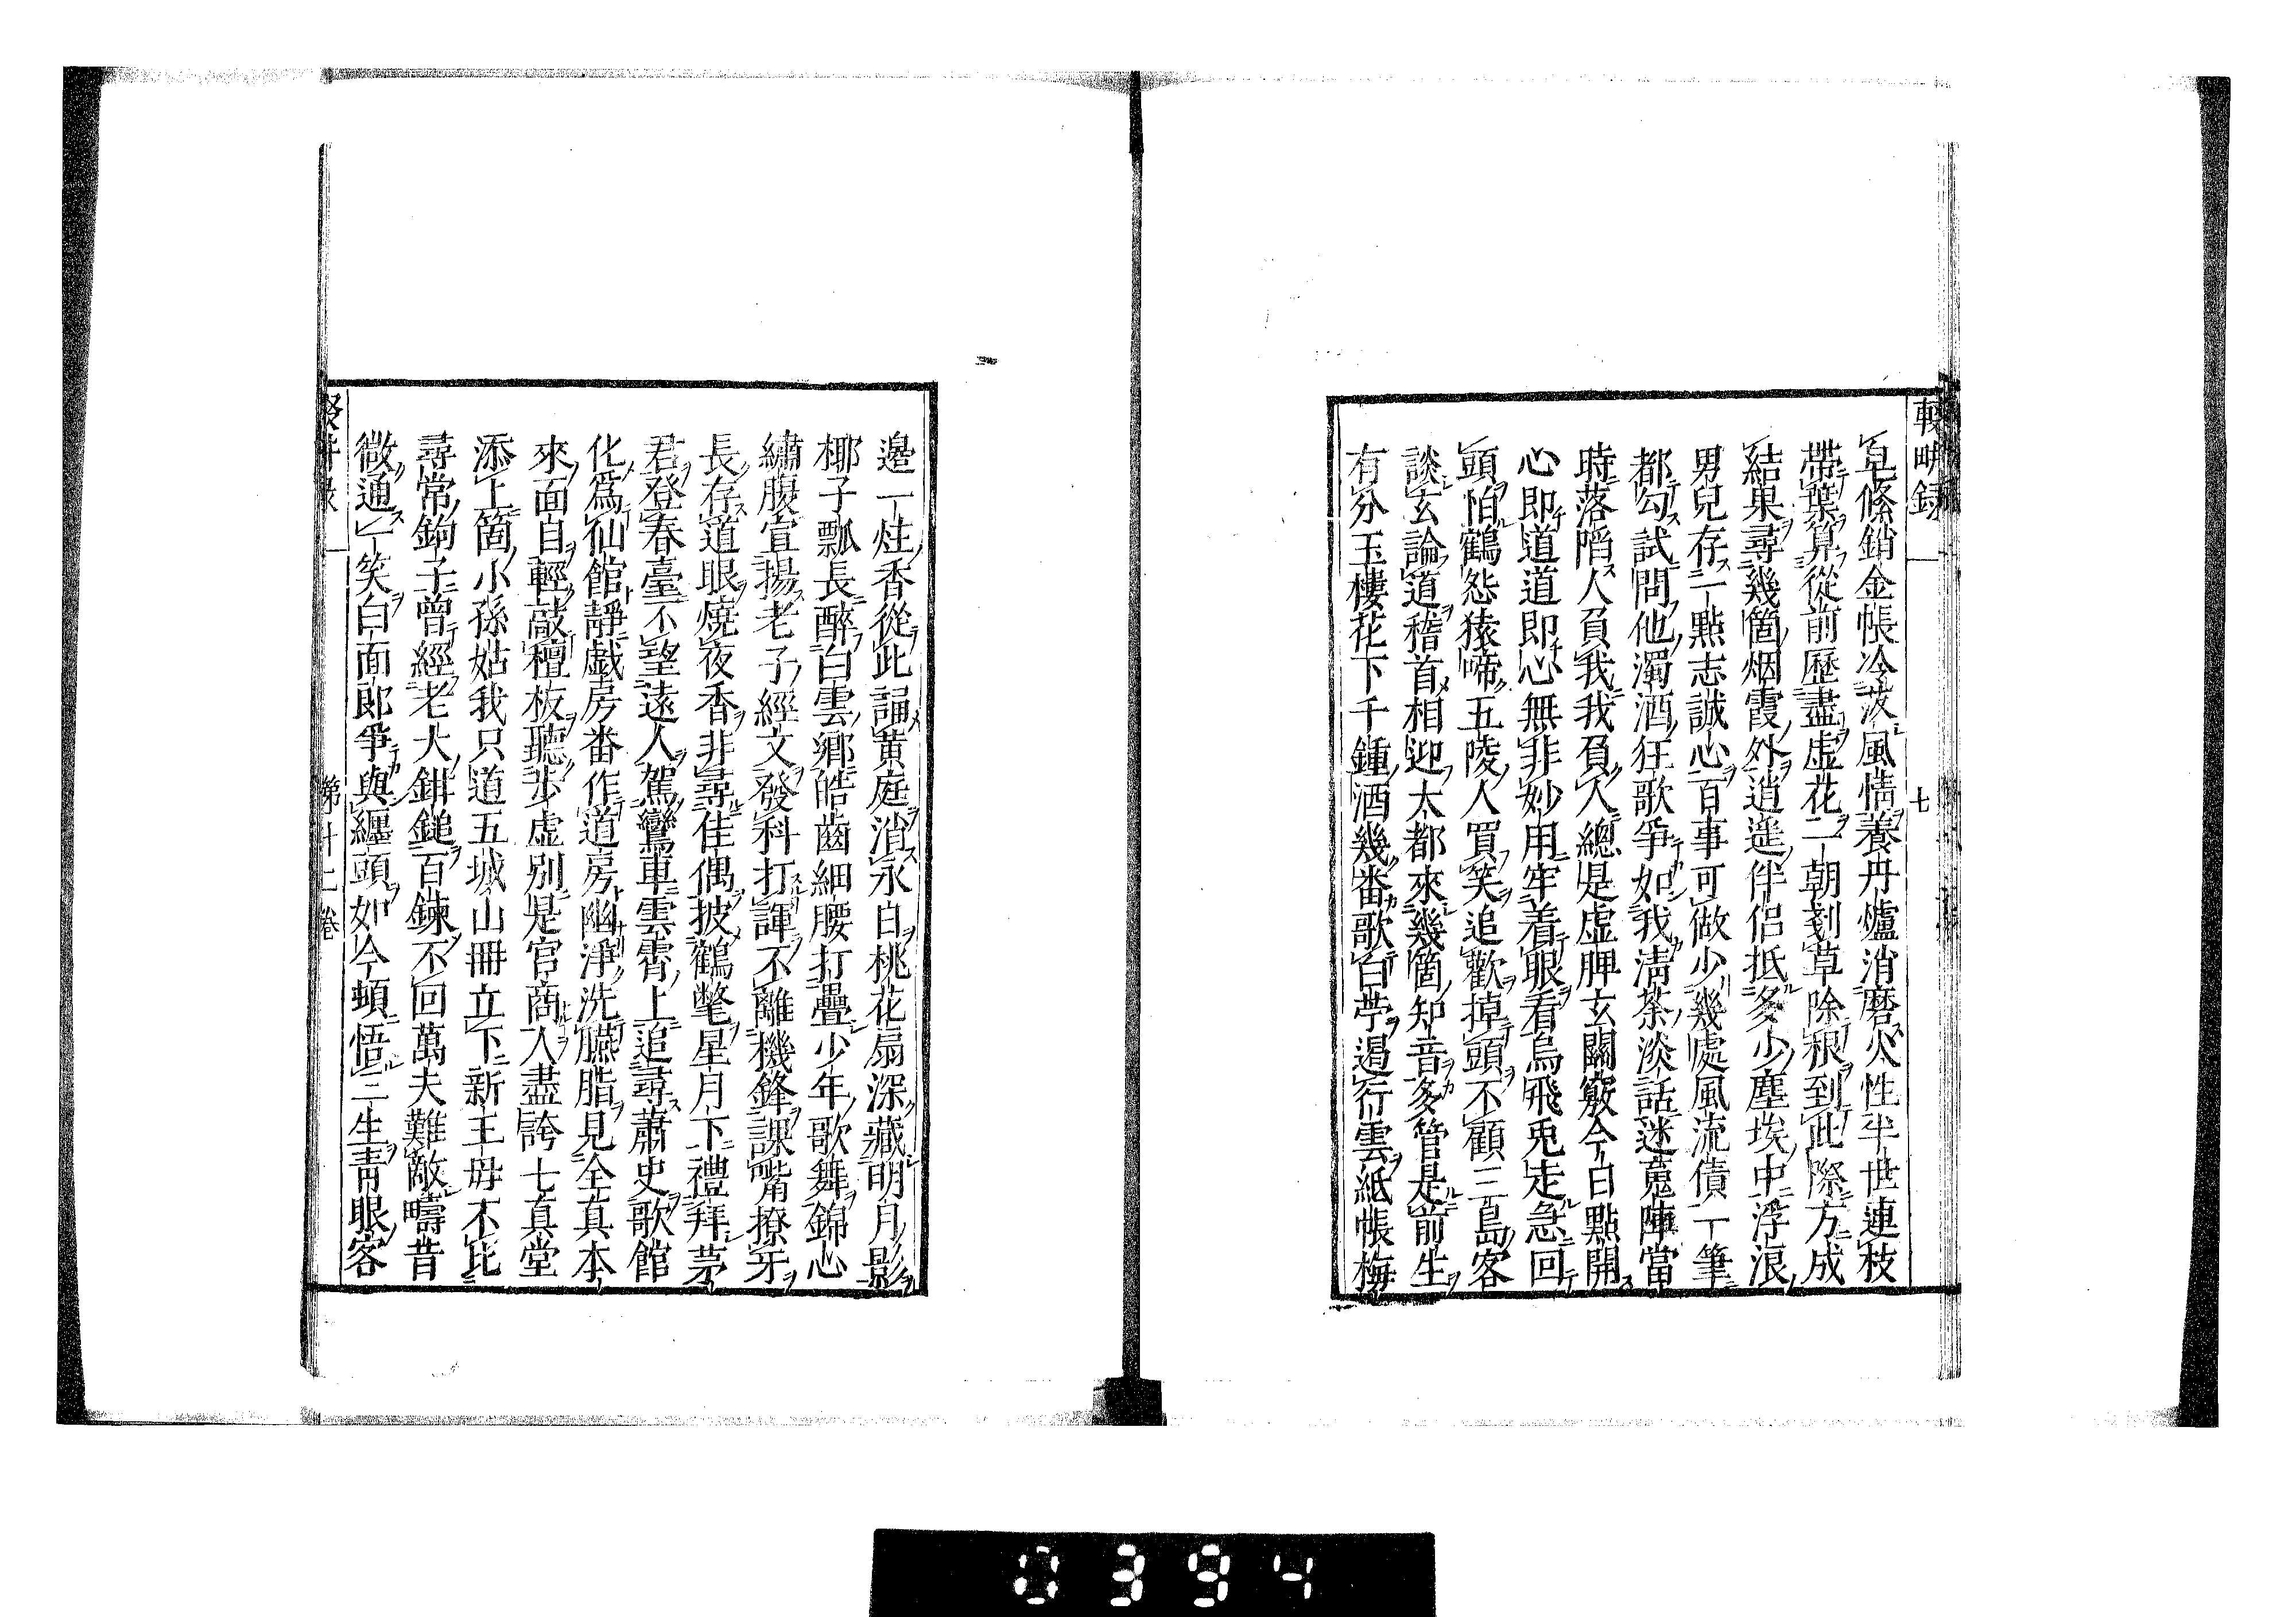 輟畊録
七
皂絛銷金帳冷落風情養丹爐消磨火性半世連枝
帶葉算從前歷盡虛花一朝剗草除根到此際方成
結果尋幾箇烟霞外逍遥伴侣抵多少塵埃中浮浪
男兒存一點志誠心百事可做少幾處風流債一筆
都勾試問他濁酒狂歌爭如我淸茶淡話迷䰟陣當
時落陷人負我我負人總是虛脾玄關竅今日點開
心即道道即心無非妙用牢着眼看烏飛兎走急回
頭怕鶴怨猿啼五陵人買笑追歡掉頭不顧三島客
談玄論道稽首相迎大都來幾箇知音多管是前生
有分玉樓花下千鍾酒幾番歌白苧遏行雲紙帳梅
邊一炷香從此誦黃庭消永日桃花扇深藏明月影
椰子瓢長醉白雲鄉皓齒細腰打疊少年歌舞錦心
繡腹宣揚老子經文發科打諢不離機鋒課嘴撩牙
長存道眼燒夜香非尋佳偶披鶴氅星月下禮拜茅
君登春臺不望遠人駕鸞車雲霄上追尋蕭史歌館
化爲仙館靜戯房番作道房幽淨洗臙脂見全真本
來面目輕敲檀板聽步虛別是官商人盡誇七真堂
添上箇小孫姑我只道五城山冊立下新王母不比
尋常鉤子曾經老大鉗鎚百鍊不回萬夫難敵疇昔
微通一笑白面郎爭與纒頭如今頓悟三生靑眼客
第廿二卷
0394